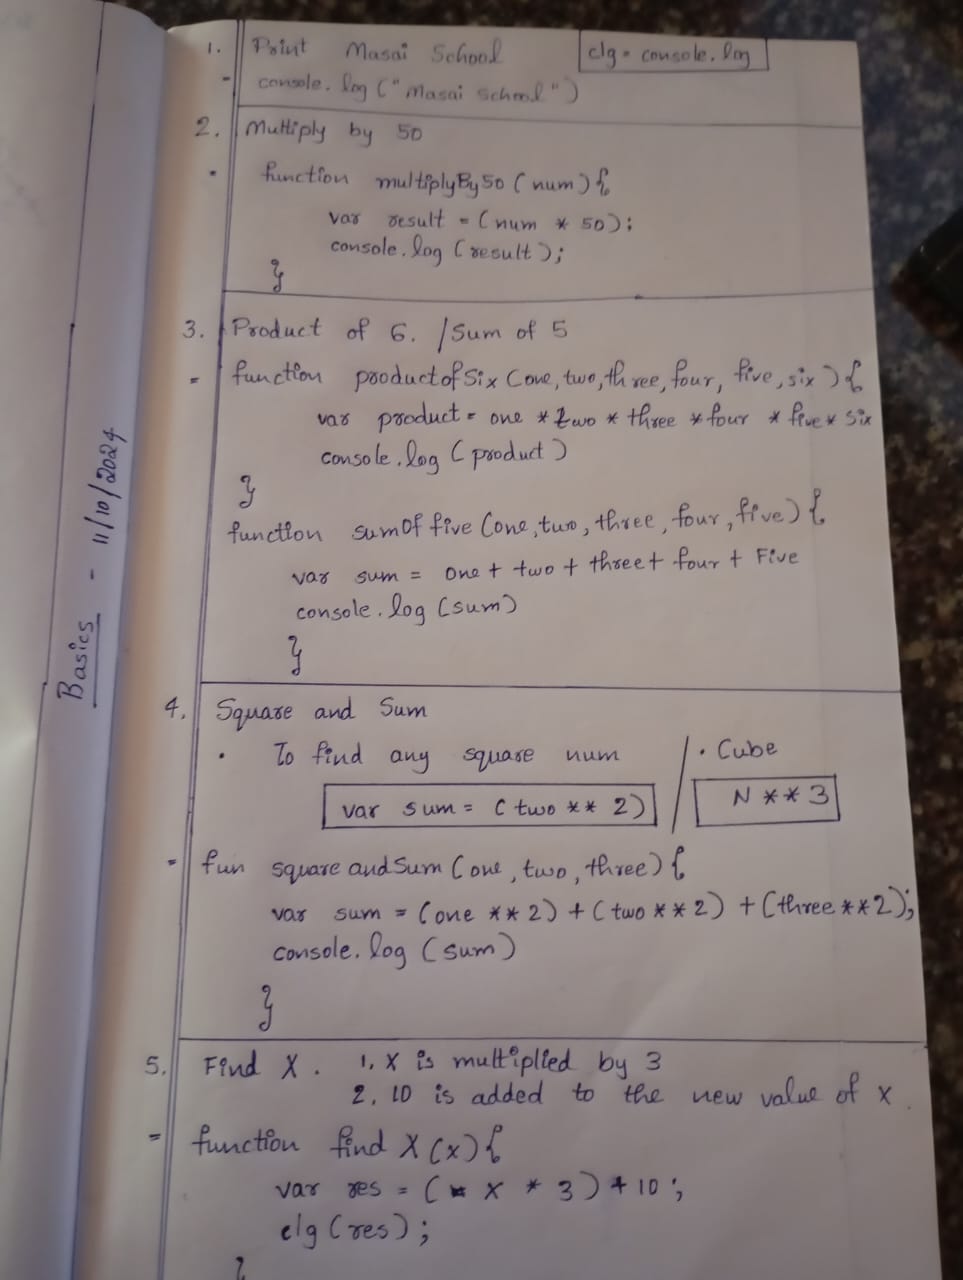 Basics - 11/10/2024
1. Print Masai School
clg = console.log
- console.log ("Masai School")
2. Multiply by 50
• function multiplyBy50 (num) {
var result = (num * 50);
console.log (result);
}
3. Product of 6. / Sum of 5
= function productofSix (one, two, three, four, five, six) {
var product = one * two * three * four * five * six
console.log (product)
}
function sumOf five (one, two, three, four, five) {
var sum = one + two + three + four + Five
console.log (sum)
}
4. Square and Sum
• To find any square num / • Cube
var sum = (two ** 2)
N ** 3
= fun square andSum (one, two, three) {
var sum = (one ** 2) + (two ** 2) + (three ** 2);
console.log (sum)
}
5. Find X. 1, X is multiplied by 3
2, 10 is added to the new value of x.
= function find X (x) {
var res = ( x * 3) + 10;
clg (res);
}